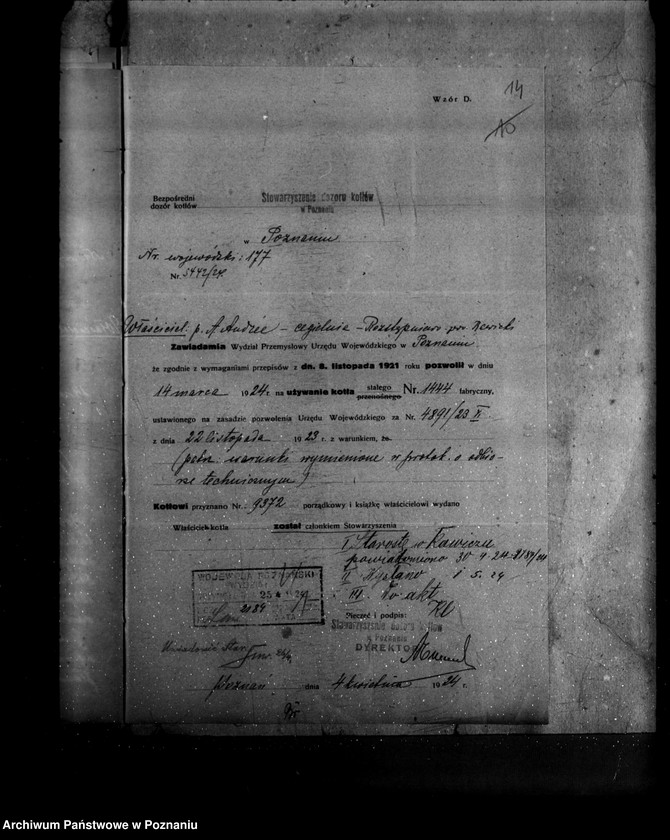 14
Wzór D.
10
Bezpośredni
dozór kotłów
Stowarzyszenie dozoru kotłów
w Poznaniu
w Poznaniu
Nr. wojewódzki: 177
Nr. 3442/24.
Właściciel: p. A Andrée – cegielnia –
Zawiadamia Wydział Przemysłowy Urzędu Wojewódzkiego w Poznaniu
że zgodnie z wymaganiami przepisów z dn. 8. listopada 1921 roku pozwolił w dniu
14 marca 1924 r. na używanie kotła stałego przenośnego Nr. 1444 fabryczny,
ustawionego na zasadzie pozwolenia Urzędu Wojewódzkiego za Nr. 4891/23 II.
z dnia 22 listopada 1923 r. z warunkiem, że
(patrz warunki wymienione w protok. o odbio-
rze technicznym)
Kotłowi przyznano Nr.: 9372 porządkowy i książkę właścicielowi wydano
Właściciel kotła został członkiem Stowarzyszenia
I Starostę w Rawiczu
powiadomiono 30 4. 24.
II Wysłano 1 5. 24
III. Do akt
WOJEWODA POZNAŃSKI
25 4 1924
Pieczęć i podpis:
Stowarzyszenie dozoru kotłów
w Poznaniu
DYREKTOR
Poznań dnia 4 kwietnia 1924 r.
Archiwum Państwowe w Poznaniu